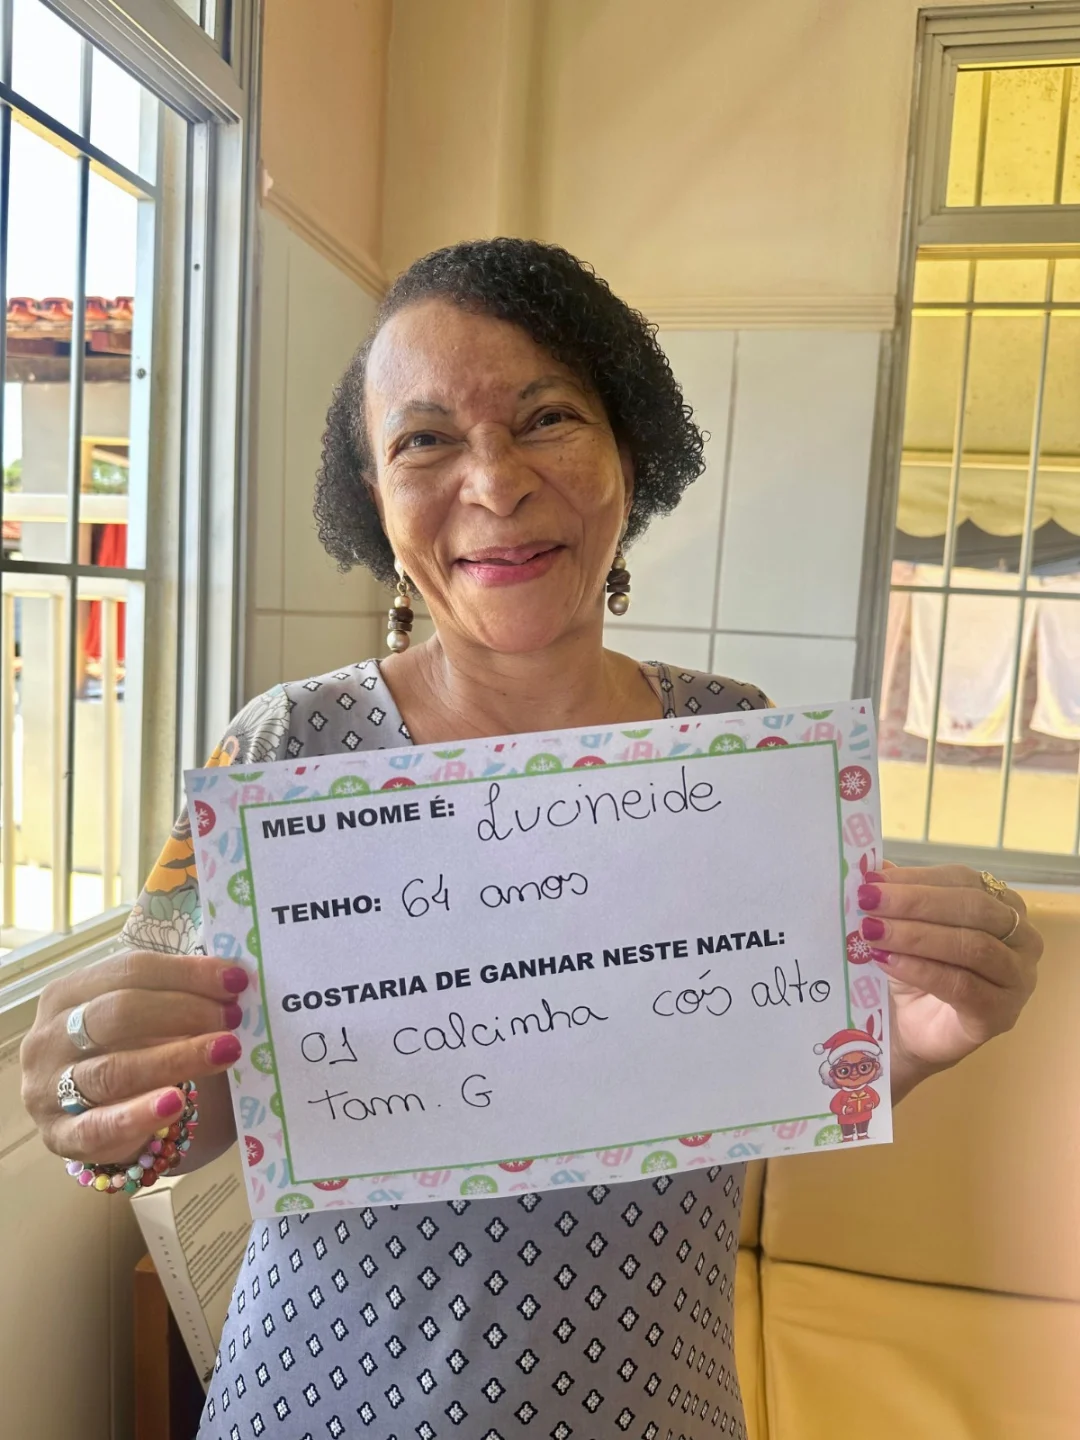 MEU NOME É: Lucineide
TENHO: 64 anos
GOSTARIA DE GANHAR NESTE NATAL:
01 calcinha cós alto
Tam. G